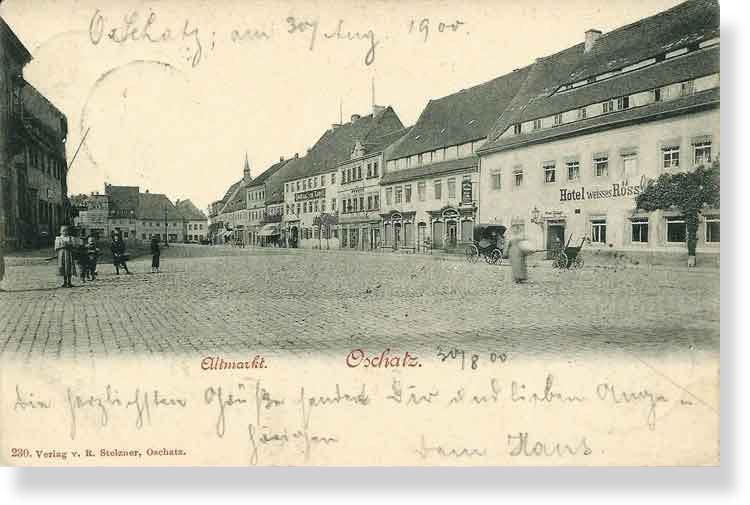 Oschatz, am 30/ Aug. 1900.
Hôtel weisses Rössl
Altmarkt. Oschatz. 30/8 00
die herzlichsten Grüße sendet Dir und lieben Ange-
hörigen dein Hans.
230. Verlag v. R. Stelzner, Oschatz.